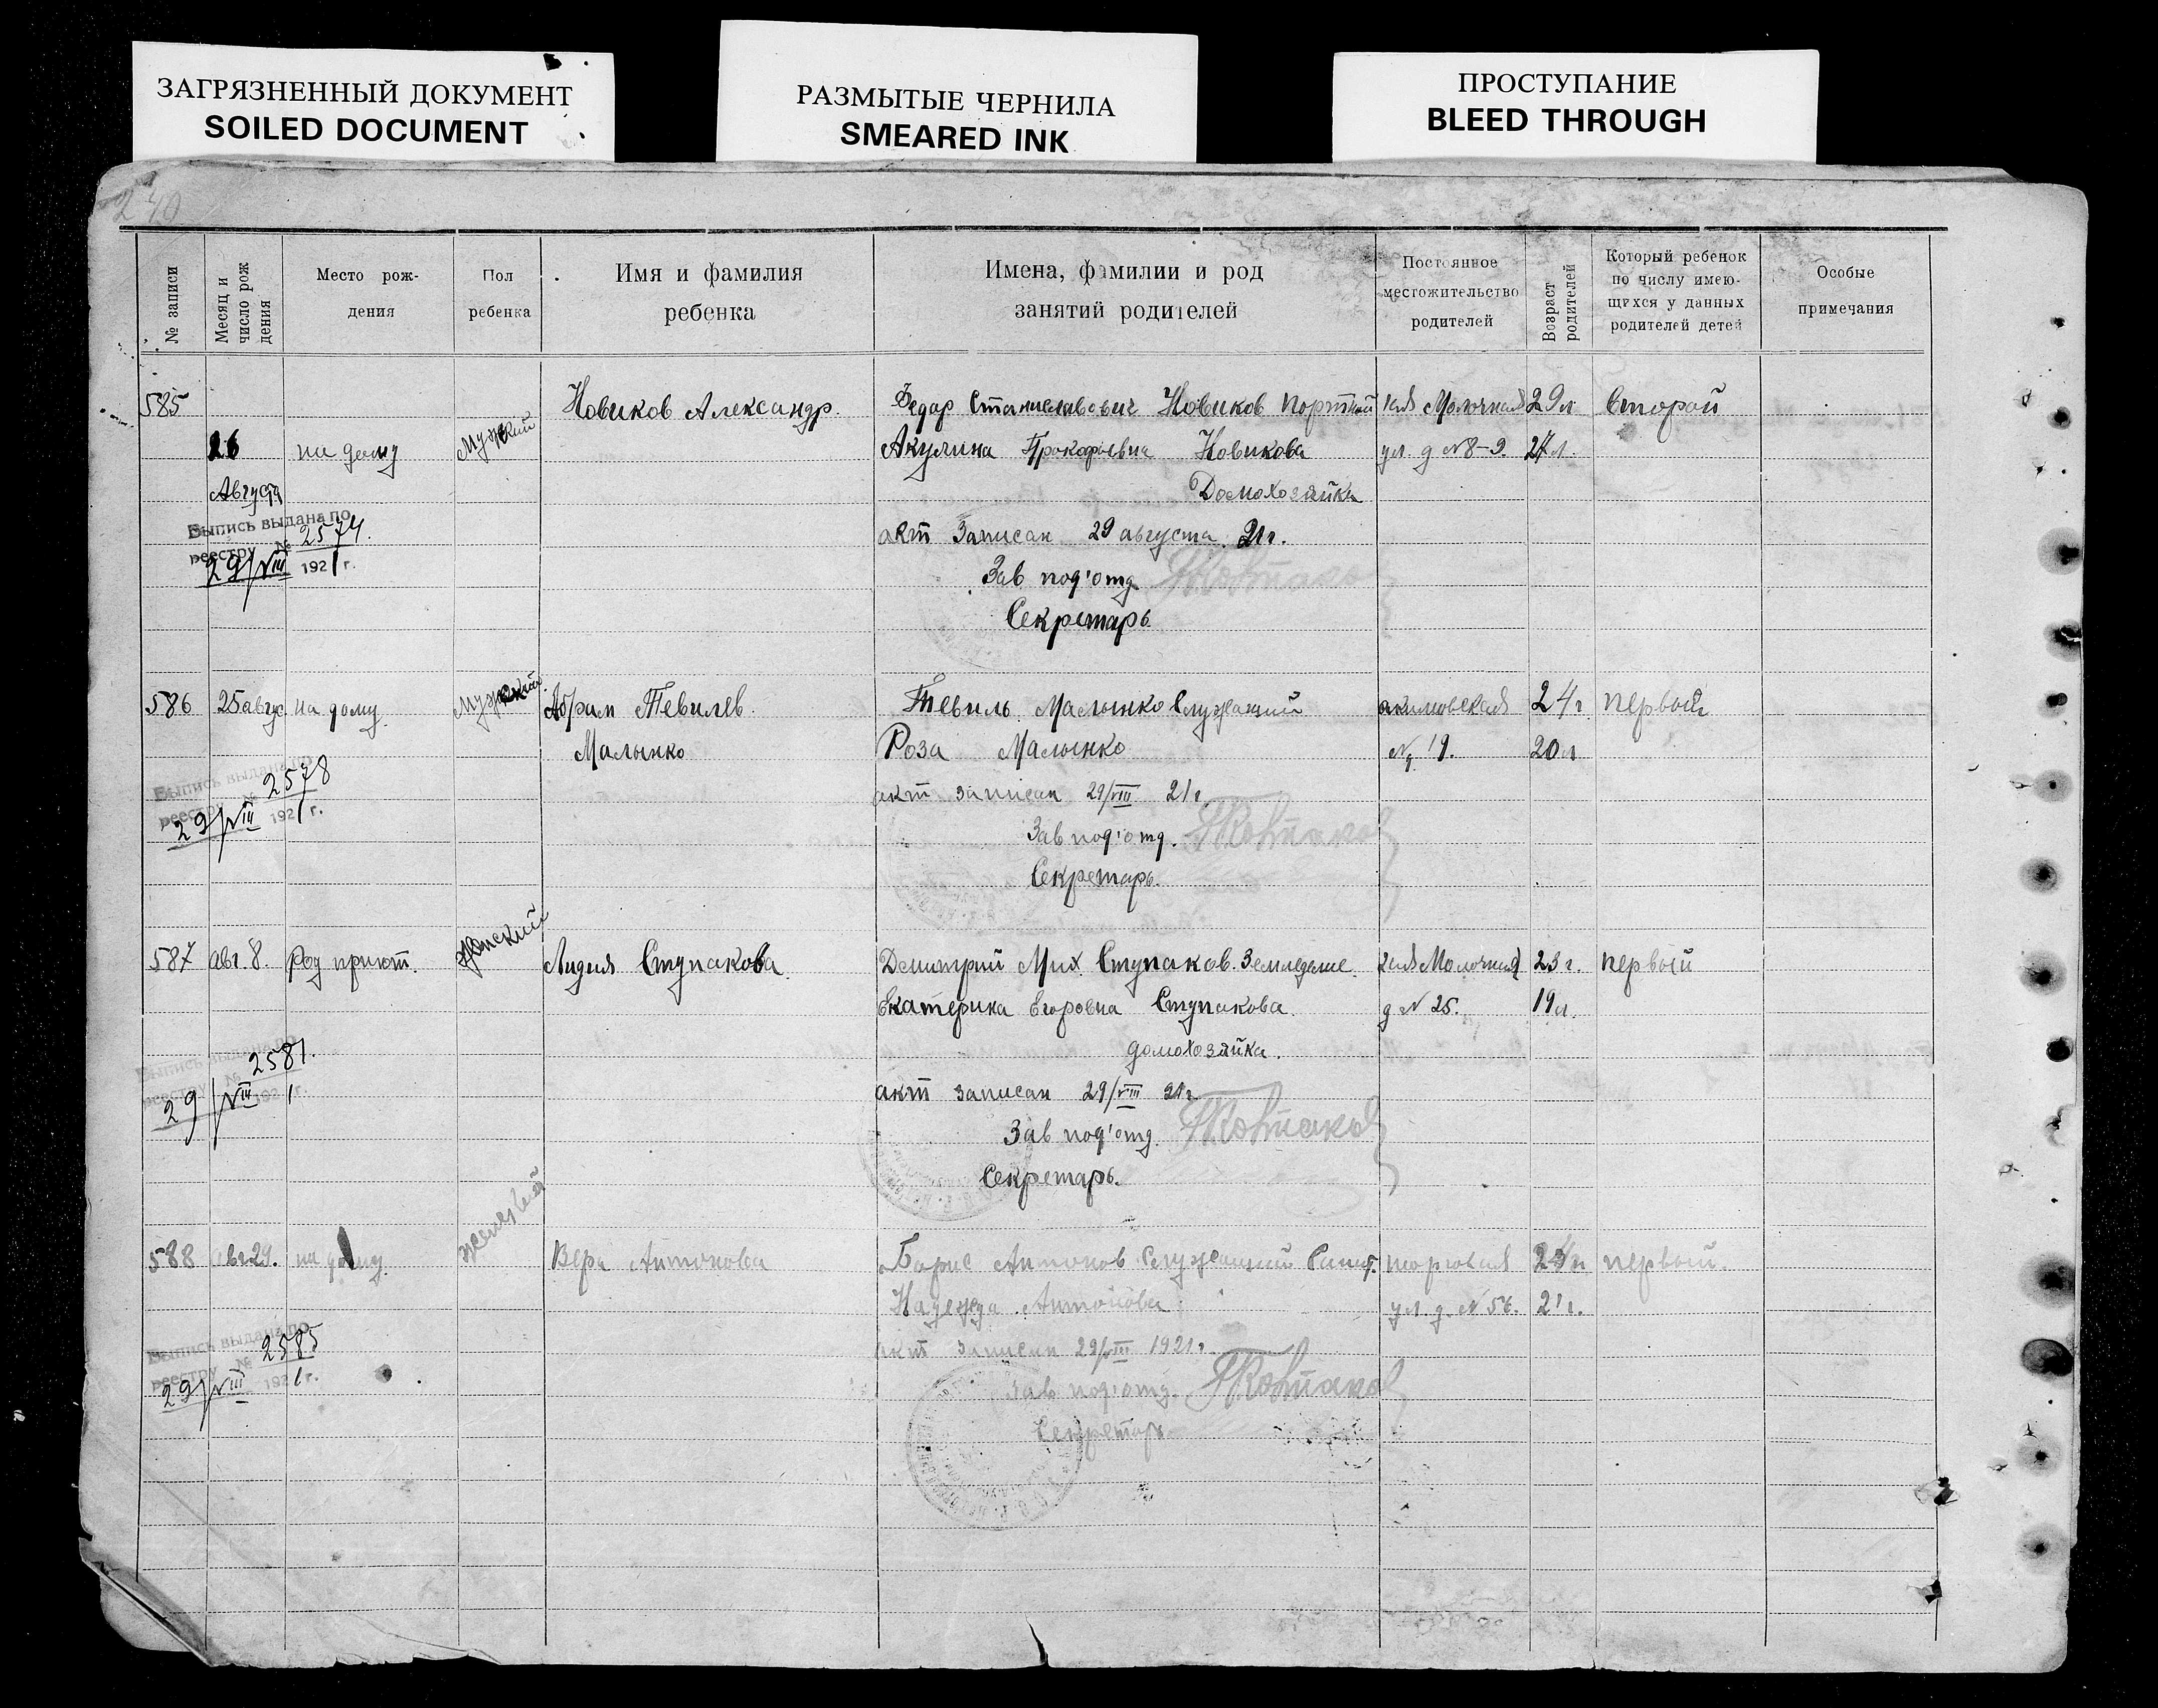 ЗАГРЯЗНЕННЫЙ ДОКУМЕНТ
SOILED DOCUMENT
РАЗМЫТЫЕ ЧЕРНИЛА
SMEARED INK
ПРОСТУПАНИЕ
BLEED THROUGH
240
№ записи
Месяц и число рождения
Место рож-
дения
Пол
ребенка
Имя и фамилия
ребенка
Имена, фамилии и род
занятий родителей
Постоянное
местожительство
родителей
Возраст
родителей
Который ребенок
по числу имею-
щихся у данных
родителей детей
Особые
примечания
585 Новиков Александр. Федар Станиславович Новиков Портной 1ая Молочная 29 л Второй
26 на дому Мужской Акулина Прокофьевна Новикова ул. д №8-9. 27 л.
Августа Домохозяйка
Выпись выдана по
реестру № 2574.
29/VIII 1921 г.
акт Записан 29 августа 21г.
Зав под'отд
Секретарь
586 25 авгус на дому Мужской Абрам Тевилев Тевиль Малынко Служащий акимовская 24 г первый
Малынко Роза Малынко № 19. 20 л
Выпись выдана по
реестру № 2578
29/VIII 1921 г.
акт записан 29/VIII 21 г.
Зав под'отд.
Секретарь.
587 авг. 8. Род приют. Женский Лидия Ступакова Демитрий Мих Ступаков. Земледелие 2ая Молочная 23 г. первый
Екатерина Егоровна Ступакова д № 25. 19 л.
домохозяйка.
Выпись выдана по
реестру № 2581.
29/VIII 1921 г.
акт записан 29/VIII 21г
Зав под'отд.
Секретарь.
588 авг 29. на дому Женский Вера Антонова Борис Антонов Служащий торговая 24 г первый.
Надежда Антонова ул д № 56. 21 г.
Выпись выдана по
реестру № 2585
29/VIII 1921 г.
акт записан 29/VIII 1921 г.
Зав под'отд.
Секретарь